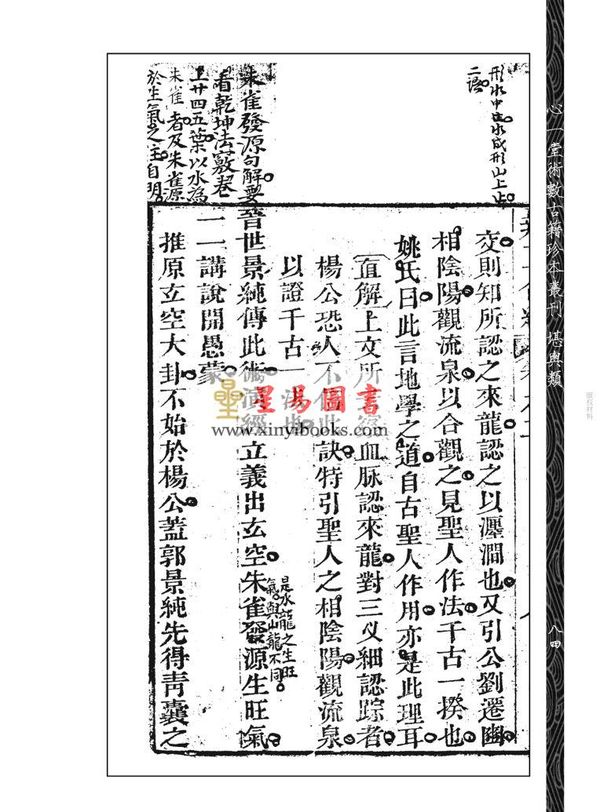 心一堂術數古籍珍本叢刊 堪輿類
八四
形水中水成形山上止
二語
交則知所認之來龍認之以瀍澗也又引公劉遷豳
相陰陽觀流泉以合觀之見聖人作法千古一揆也
姚氏曰此言地學之道自古聖人作用亦是此理耳
直解上文所 察血脉認來龍對三叉細認踪者
楊公恐人不信此訣特引聖人之相陰陽觀流泉
以證千古一法也
朱雀發源句解要
看乾坤法竅卷
上廿四五葉以水為
朱雀者及朱雀源
於生氣之注自明
晉世景純傳此術演經立義出玄空朱雀發源生旺氣
是水龍之生旺
氣與山龍不同
一一講說開愚蒙
推原玄空大卦不始於楊公蓋郭景純先得青囊之
星易圖書
www.xinyibooks.com